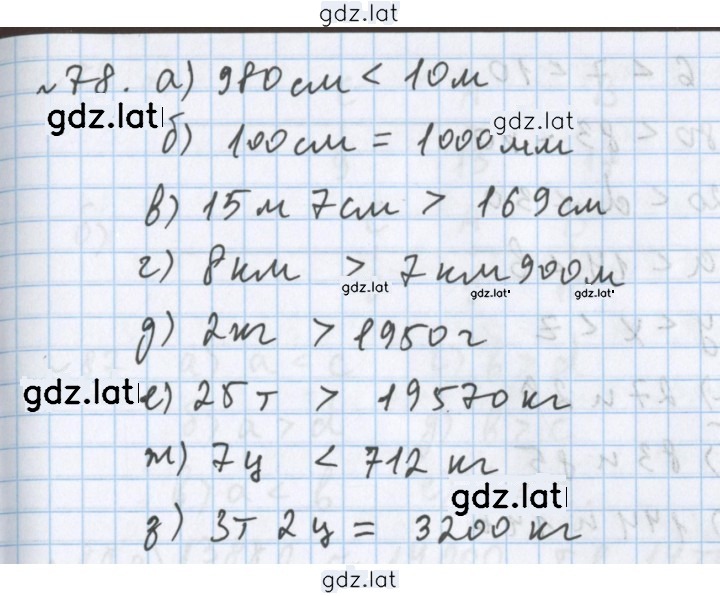 gdz.lat
№78. а) 980см < 10м
gdz.lat
gdz.lat
б) 100см = 1000мм
в) 15м 7см > 169см
г) 8км > 7км 900м
gdz.lat gdz.lat gdz.lat
д) 2кг > 1950г
gdz.lat
е) 25т > 19570кг
ж) 7ц < 712кг
gdz.lat
з) 3т 2ц = 3200кг
gdz.lat